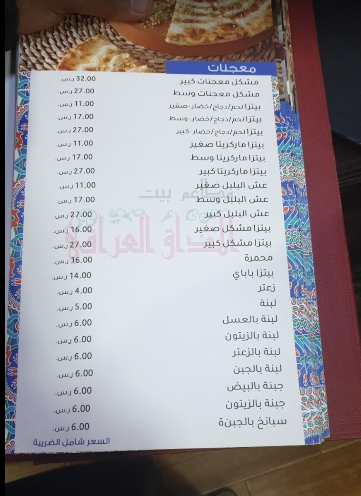 معجنات
مشكل معجنات كبير 32.00 ر.س.
مشكل معجنات وسط 27.00 ر.س.
بيتزا لحم/دجاج/خضار-صغير 11.00 ر.س.
بيتزا لحم/دجاج/خضار-وسط 17.00 ر.س.
بيتزا لحم/دجاج/خضار-كبير 27.00 ر.س.
بيتزا ماركريتا صغير 11.00 ر.س.
بيتزا ماركريتا وسط 17.00 ر.س.
بيتزا ماركريتا كبير 27.00 ر.س.
عش البلبل صغير 11.00 ر.س.
عش البلبل وسط 17.00 ر.س.
عش البلبل كبير 27.00 ر.س.
بيتزا مشكل صغير 16.00 ر.س.
بيتزا مشكل كبير 27.00 ر.س.
محمرة 16.00 ر.س.
بيتزا باباي 14.00 ر.س.
زعتر 4.00 ر.س.
لبنة 5.00 ر.س.
لبنة بالعسل 6.00 ر.س.
لبنة بالزيتون 6.00 ر.س.
لبنة بالزعتر 6.00 ر.س.
لبنة بالجبن 6.00 ر.س.
جبنة بالبيض 6.00 ر.س.
جبنة بالزيتون 6.00 ر.س.
سبانخ بالجبنة 6.00 ر.س.
السعر شامل الضريبة